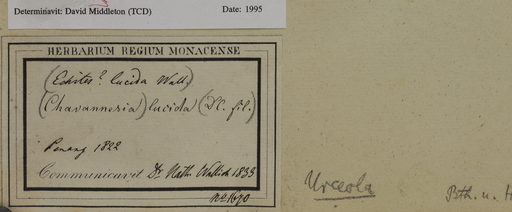 Determinavit: David Middleton (TCD) Date: 1995
HERBARIUM REGIUM MONACENSE
(Echites? lucida Wall.)
(Chavannesia) lucida (DC. fil.)
Penang 1822
Communicavit Dr Nath. Wallich 1833
no. 1670
Urceola
Bth. u.